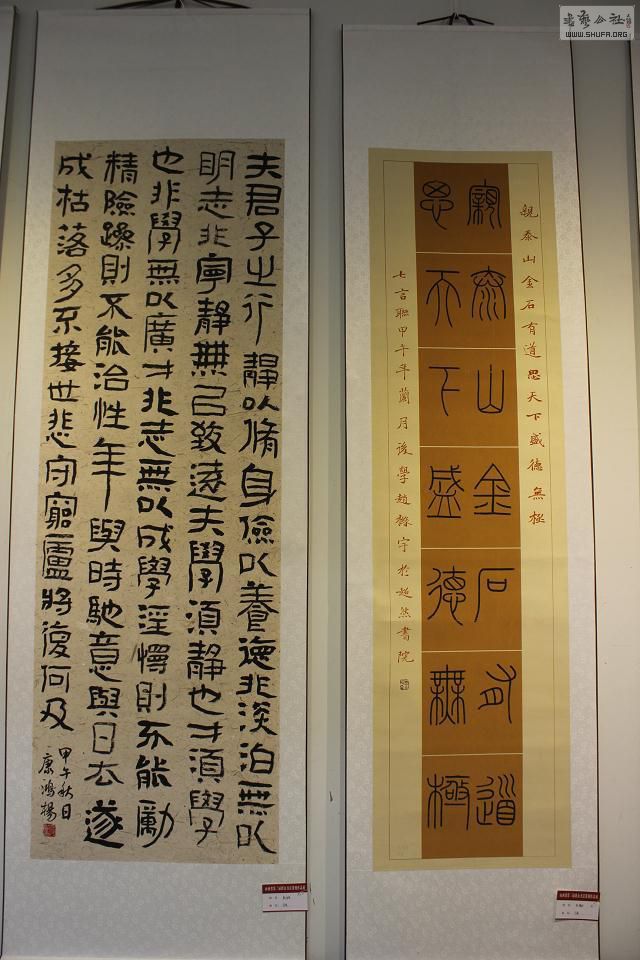 書藝公社
WWW.SHUFA.ORG
親泰山金石有道思天下盛德無極
親泰山金石有道
思天下盛德無極
七言聯甲午年蘭月後學趙宇於超然書院
夫君子之行靜以脩身儉以養德非淡泊無以
明志非寧靜無以致遠夫學須靜也才須學
也非學無以廣才非志無以成學淫慢則不能勵
精險躁則不能治性年與時馳意與日去遂
成枯落多不接世悲守窮廬將復何及
甲午秋日
康鴻楊